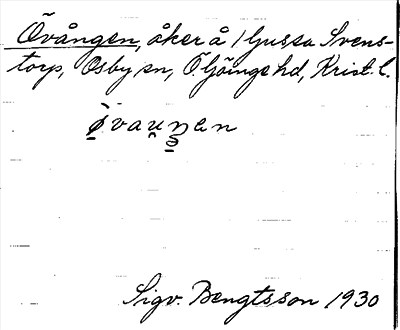 Övången, åker å Ljussa Svens-
torp, Osby sn, Ö. Göinge hd, Krist. l.
Sigv. Bengtsson 1930